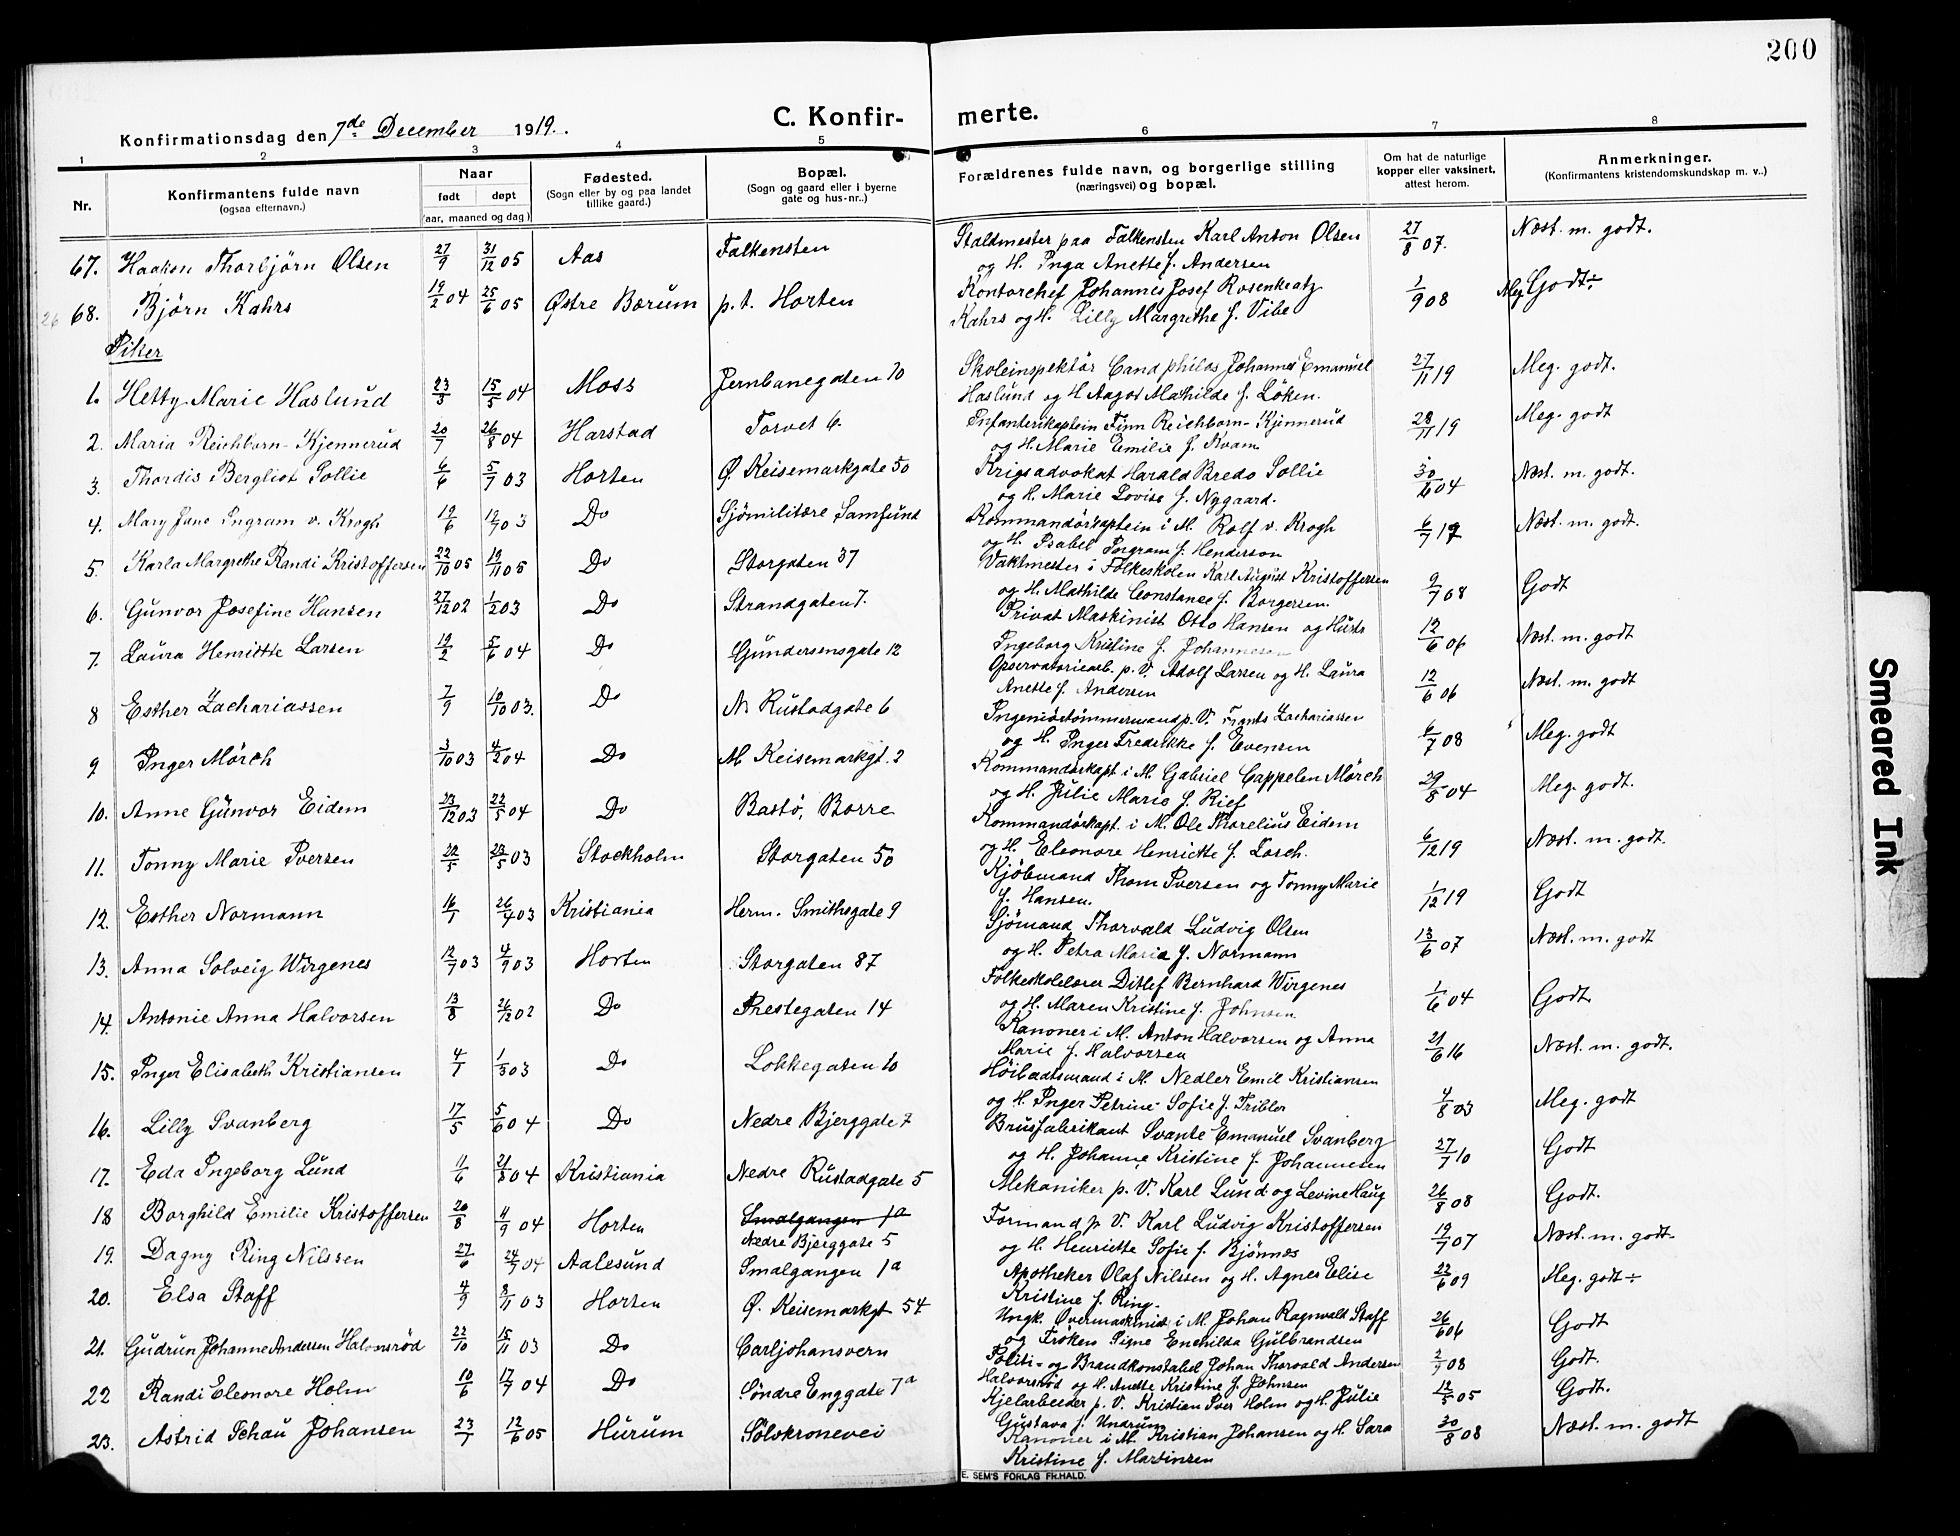 200
Konfirmationsdag den 7de December 1919.
C. Konfir- merte.
1 2 3 4 5 6 7 8
Nr.
Konfirmantens fulde navn
(ogsaa efternavn.)
Naar
født døpt
(aar, maaned og dag)
Fødested.
(Sogn eller by og paa landet
tillike gaard.)
Bopæl.
(Sogn og gaard eller i byerne
gate og hus-nr..)
Forældrenes fulde navn, og borgerlige stilling
(næringsvei) og bopæl.
Om hat de naturlige
kopper eller vaksinert,
attest herom.
Anmerkninger.
(Konfirmantens kristendomskundskap m. v..)
67. Haakon Thorbjörn Olsen 27/9 31/12 05 Aas Falkensten Staldmester paa Falkensten Karl Anton Olsen 27/8 07. Næst. m. godt.
og H. Inga Anette f. Andersen
26 68. Björn Kahrs 19/2 04 25/6 05 Østre Bærum p.t. Horten Kontorchef Johannes Josef Rosenkratz 1/9 08 Meg Godt÷
Kahrs og H. Lilly Margrethe f. Vibe
Piker
1. Hetty Marie Haslund 23/3 15/5 04 Moss Jernbanegaten 10 Skoleinspektör Cand philos Johannes Emanuel 27/11 19 Meg. godt.
Haslund og H Aagot Mathilde f. Löken.
2. Maria Reichborn-Kjennerud 20/7 26/8 04 Harstad Torvet 6. Infanterikaptein Finn Reichborn-Kjennerud 28/11 19 Meg. godt
og H. Marie Emilie f. Kvam
3. Thordis Bergliot Sollie 6/6 5/7 03 Horten Ø. Keisemarkgate 50 Krigsadvokat Harald Bredo Sollie 30/6 04 Næst. m. godt.
og H. Marie Lovise f. Nygaard.
4. Mary Jane Ingram v. Krogh 19/6 19/7 03 Do Sjömilitære Samfund Kommandörkaptein i M. Rolf v. Krogh 6/7 17 Næst. m. godt.
og H. Isabel Ingram f. Henderson
5. Karla Margrethe Randi Kristoffersen 22/10 05 19/11 05 Do Storgaten 37 Vaktmester i Folkeskolen Karl August Kristoffersen 9/7 08 Godt
og H. Mathilde Constance f. Borgersen.
6. Gunvor Josefine Hansen 27/12 02 1/2 03 Do Strandgaten 7. Privat Maskinist Otto Hansen og Hustr 12/6 06 Næst. m. godt
Ingeborg Kristine f. Johannesen
7. Laura Henriette Larsen 19/2 5/6 04 Do Gundersensgate 12 Opservatoriearb. p. V. Adolf Larsen og H. Laura 12/6 06 Næst. m. godt
Anette f. Andersen
8 Esther Zachariassen 7/9 10/10 03. Do N. Rustadgate 6 Ingeniörtömmermand p. V. Frants Zachariassen 6/7 08 Meg. godt
og H. Inger Fredrikke f. Evensen
9 Inger Mörch 3/10 03 4/2 04 Do M. Keisemarkgt. 2 Kommandörkapt i M. Gabriel Cappelen Mörch 29/8 04 Meg. godt.
og H. Julie Marie f. Rief
10. Anne Gunvor Eidem 23/12 03 22/5 04 Do Bastö, Borre Kommandörkapt. i M. Ole Thorelius Eidem 6/12 19 Næst. m. godt.
og H. Eleonore Henriette f. Losch.
11. Tonny Marie Iversen 22/5 23/5 03 Stockholm Storgaten 50 Kjöbmand Thom Iversen og Tonny Marie 1/12 19 Godt
f. Hansen.
12. Esther Normann 16/1 26/4 03 Kristiania Herm. Smithsgate 9 Sjömand Thorvald Ludvig Olsen 13/6 07 Næst. m. godt
og H. Petra Maria f. Normann
13. Anna Solveig Wirgenes 12/7 03 4/9 03 Horten Storgaten 87 Folkeskolelærer Ditlef Bernhard Wirgenes 1/6 04 Godt.
og H. Maren Kristine f. Johnsen
14. Antonie Anna Halvorsen 13/8 26/12 02 Do Prestegaten 14 Kanoner i M. Anton Halvorsen og Anna 21/6 16 Næst. m. godt.
Marie f. Halvorsen
15. Inger Elisabeth Kristiansen 4/1 1/3 03 Do Lökkegaten 10 Höibaatsmand i M. Nedler Emil Kristiansen 4/8 03 Meg. godt
og H. Inger Petrine Sofie f. Tribler
16. Lilly Svanberg 17/5 5/6 04 Do Nedre Bjerggate 7 Brusfabrikant Svante Emanuel Svanberg 27/7 10 Godt
og H. Johanne Kristine f. Johannesen
17. Eda Ingeborg Lund 11/6 21/8 04 Kristiania Nedre Rustadgate 5 Mekaniker p. V. Karl Lund og Levine Haug 26/8 08 Godt.
18 Borghild Emilie Kristoffersen 20/8 4/9 04 Horten Smalgangen 1a Formand p V. Karl Ludvig Kristoffersen 19/7 07 Næst. m. godt.
Nedre Bjerggate 5 og H. Henriette Sofie f. Bjönnes
19. Dagny Ring Nilssen 27/6 24/7 04 Aalesund Smalgangen 1a Apotheker Olaf Nilssen og H. Agnes Elise 22/6 09 Meg. godt÷
Kristine f. Ring.
20. Elsa Staff 4/9 8/11 03 Horten Ø. Keisemarkgt 54 Ungk. Overmaskinist i M. Johan Ragnvald Staff 26/6 06 Godt
og Fröken Signe Enchilda Gulbrandsen
21. Gudrun Johanne Andersen Halvorsröd 22/10 15/11 03 Do Carljohansvern Politi- og Brandkonstabel Johan Thorvald Andersen 2/7 08 Godt.
Halvorsröd og H. Anette Kristine f. Johnsen
22 Randi Eleonore Holm 10/6 17/7 04 Do Söndre Enggate 7a Kjelarbeider p. V. Kristian Iver Holm og H. Julie 12/5 05 Godt.
Gustava f. Undrum
23. Astrid Schau Johansen 23/7 12/6 05 Hurum Sölvkronevei Kanoner i M. Kristian Johansen og H. Sara 30/8 08 Næst. m. godt
Kristine f. Martinsen
E. SEM'S FORLAG FR.HALD.
Smeared Ink